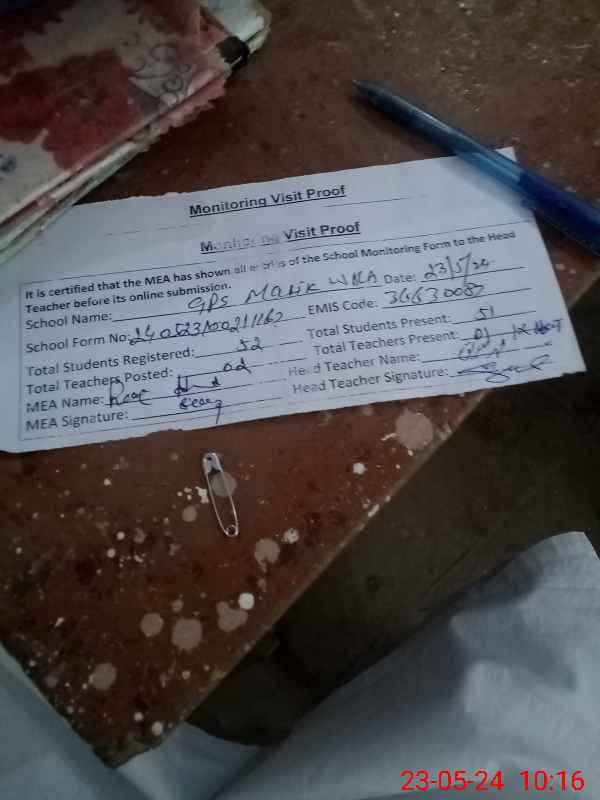 Monitoring Visit Proof
Monitoring Visit Proof
It is certified that the MEA has shown all entries of the School Monitoring Form to the Head
Teacher before its online submission.
School Name: GPS Malik WALA Date: 23/5/24
School Form No: EMIS Code:
Total Students Registered: 52 Total Students Present: 51
Total Teachers Posted: 02 Total Teachers Present: 01
MEA Name: Head Teacher Name:
MEA Signature: Head Teacher Signature:
23-05-24 10:16